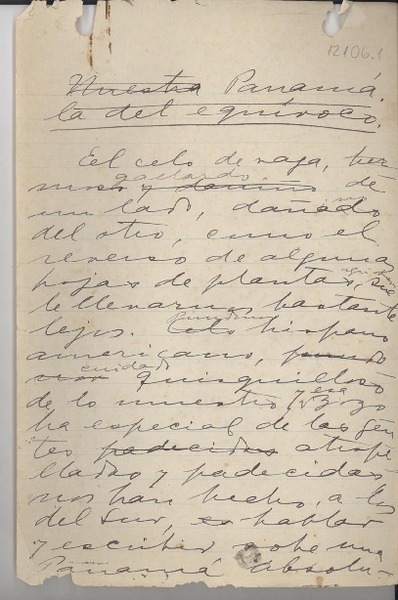 12106.1
Nuestra Panamá.
la del equívoco.
El celo de raza, her
gallardo
moso y danino de
un lado, dañado
del otro, como el
reverso de algunas
hojas de plantas, sue
le llevarnos bastante
lejos. Celo hispano
americano,
cuidado
Quisquilloso
y esa
de lo nuestro, zozo
bra especial de las gen
tes padecidas atrope
lladas y padecidas
nos han hecho, a los
del Sur, es hablar
y escribir sobre una
Panamá absolu-